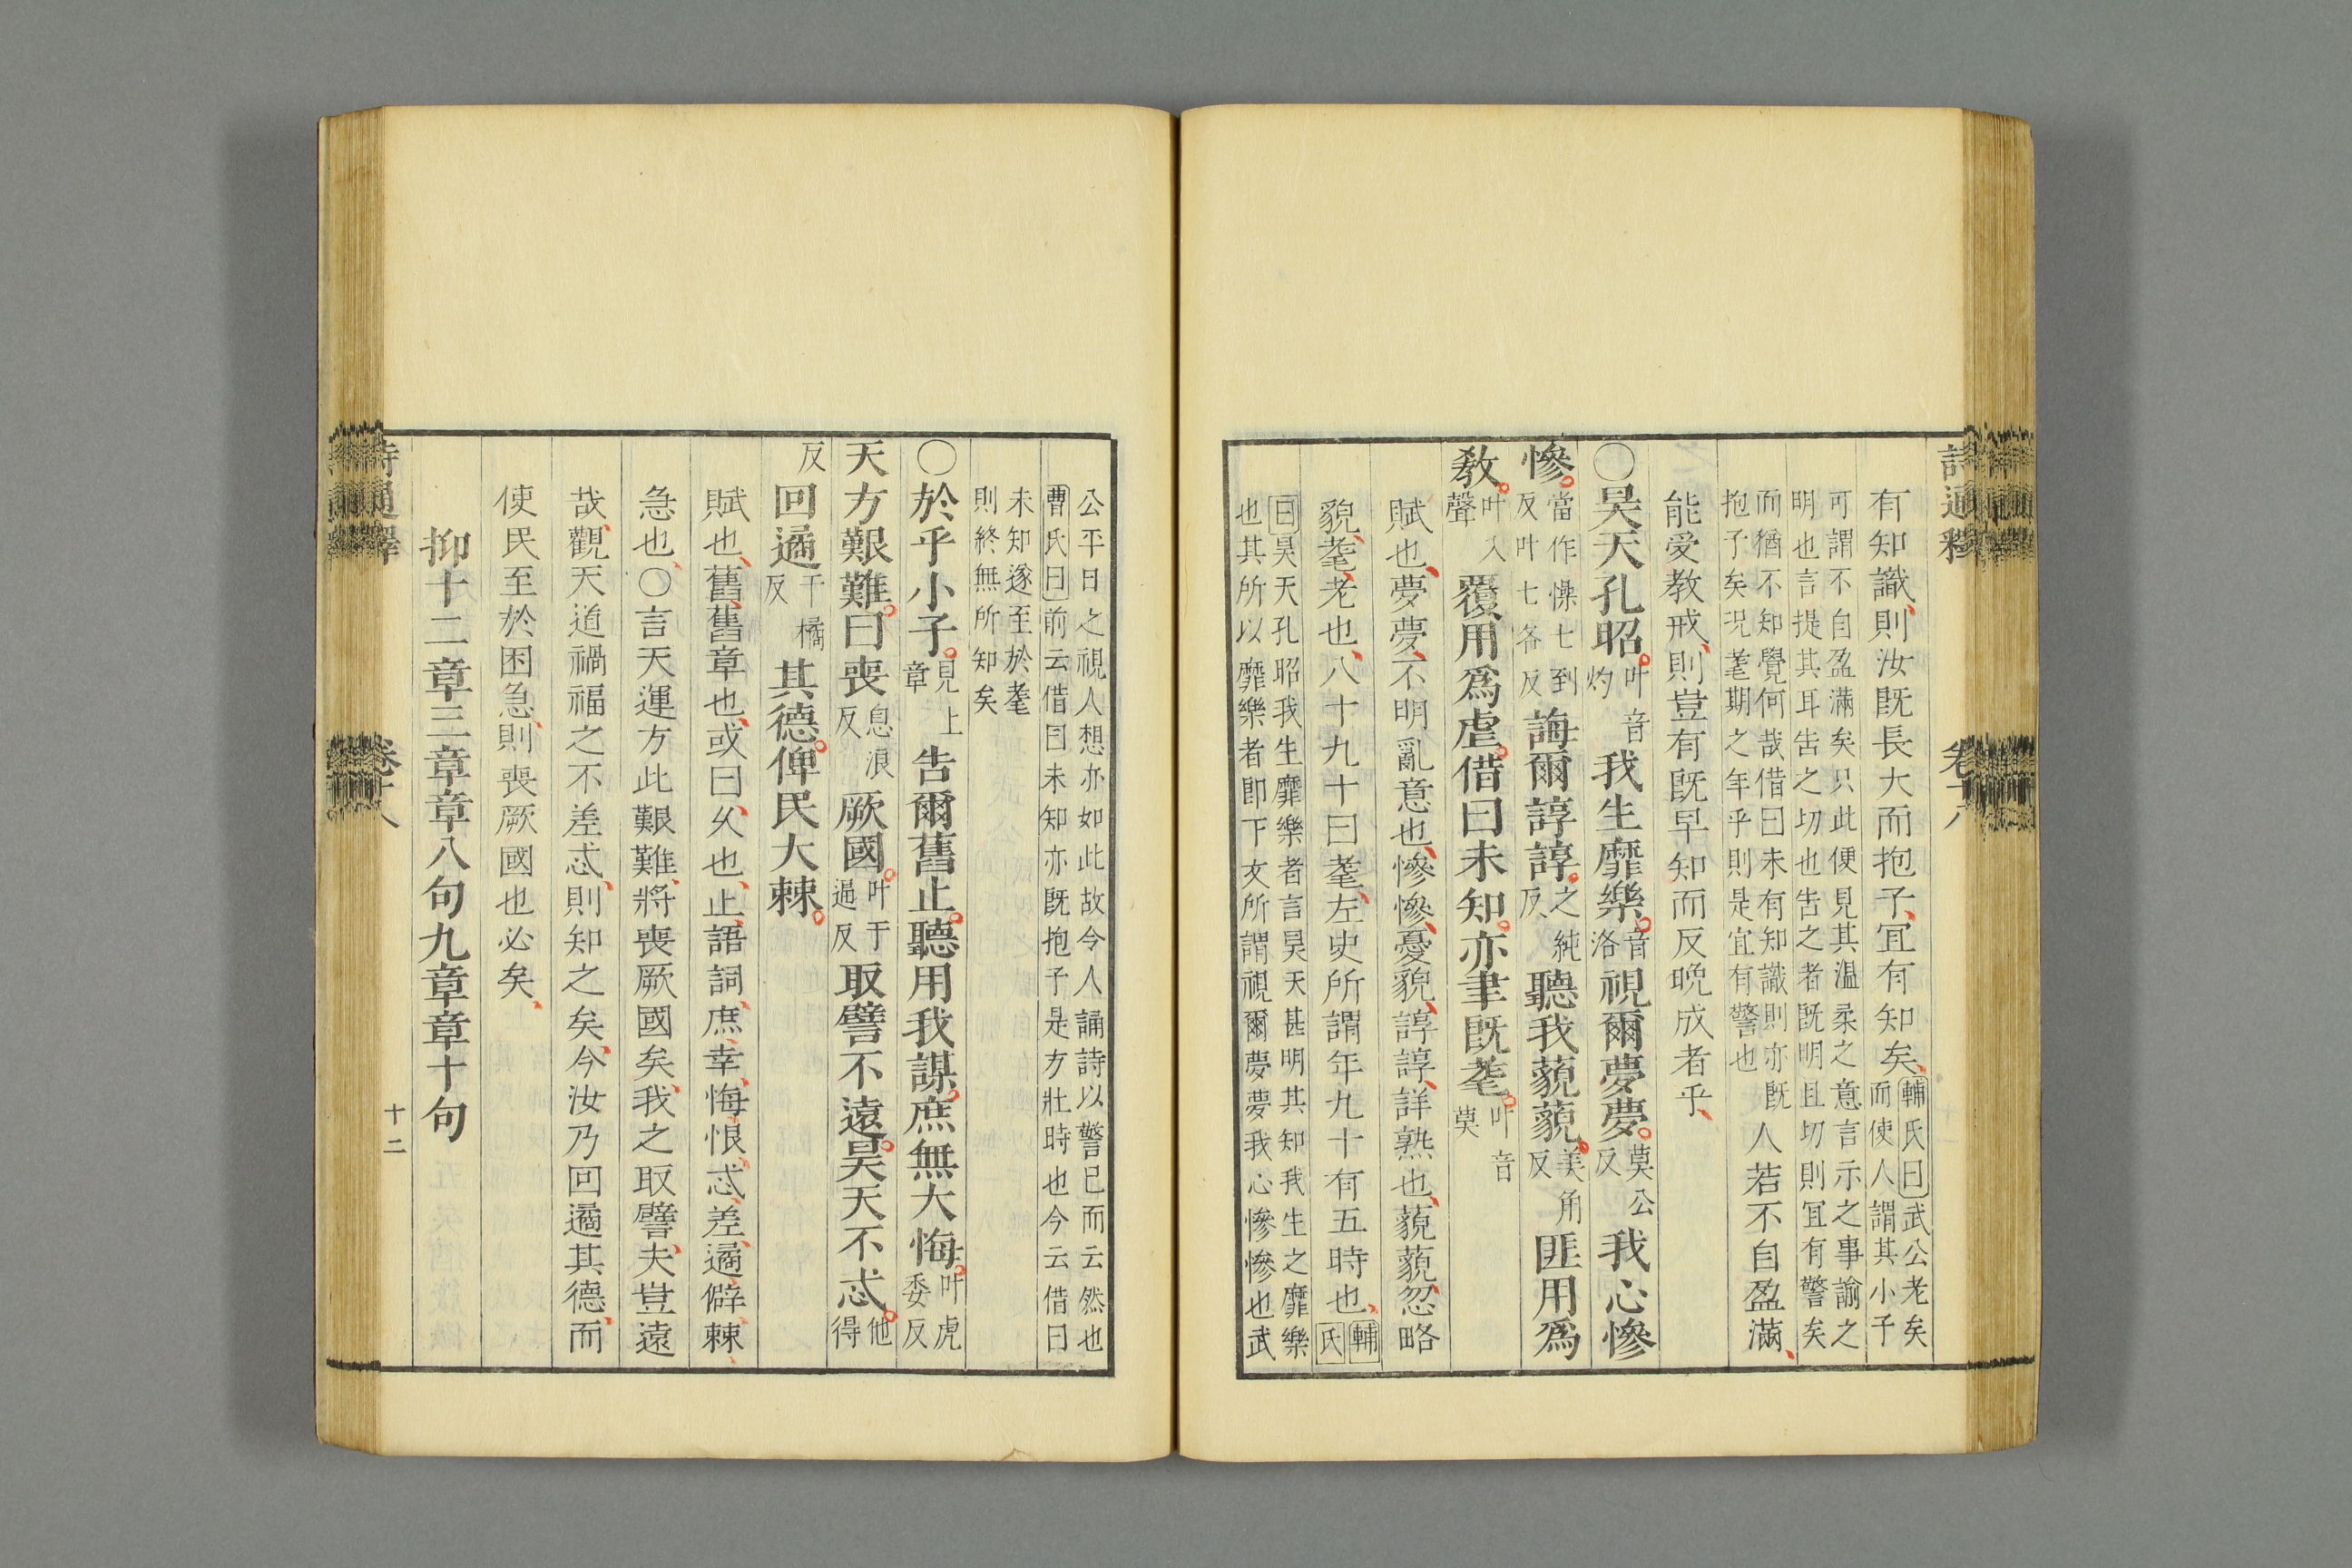 詩通釋 卷十八
有知識則汝既長大而抱子宜有知矣輔氏曰武公老矣而使人謂其小子
可謂不自盈滿矣只此便見其溫柔之意言示之事諭之明也言提其耳告之切也告之者既明且切則宜有警矣
而猶不知覺何哉借曰未有知識則亦既抱子矣況耄期之年乎則是宜有警也人若不自盈滿
能受教戒則豈有既早知而反晚成者乎
〇昊天孔昭叶音灼我生靡樂音洛視爾夢夢莫公反我心慘
慘當作懆七到反叶七各反誨爾諄諄之純反聽我藐藐美角反匪用爲
教叶入聲覆用爲虐借曰未知亦聿既耄叶音莫
賦也夢夢不明亂意也慘慘憂貌諄諄詳熟也藐藐忽略
貌耄老也八十九十曰耄左史所謂年九十有五時也輔氏
曰昊天孔昭我生靡樂者言昊天甚明其知我生之靡樂也其所以靡樂者即下文所謂視爾夢夢我心慘慘也武
公平日之視人想亦如此故今人誦詩以警已而云然也曹氏曰前云借曰未知亦既抱子是方壯時也今云借曰
未知遂至於耄則終無所知矣
〇於乎小子見上章告爾舊止聽用我謀庶無大悔叶虎委反
天方艱難曰喪息浪反厥國叶于逼反取譬不遠昊天不忒他得
反回遹于橘反其德俾民大棘
賦也舊舊章也或曰久也止語詞庶幸悔恨忒差遹僻棘
急也〇言天運方此艱難將喪厥國矣我之取譬夫豈遠
哉觀天道禍福之不差忒則知之矣今汝乃回遹其德而
使民至於困急則喪厥國也必矣
抑十二章三章章八句九章章十句
詩通釋 卷十八 十二